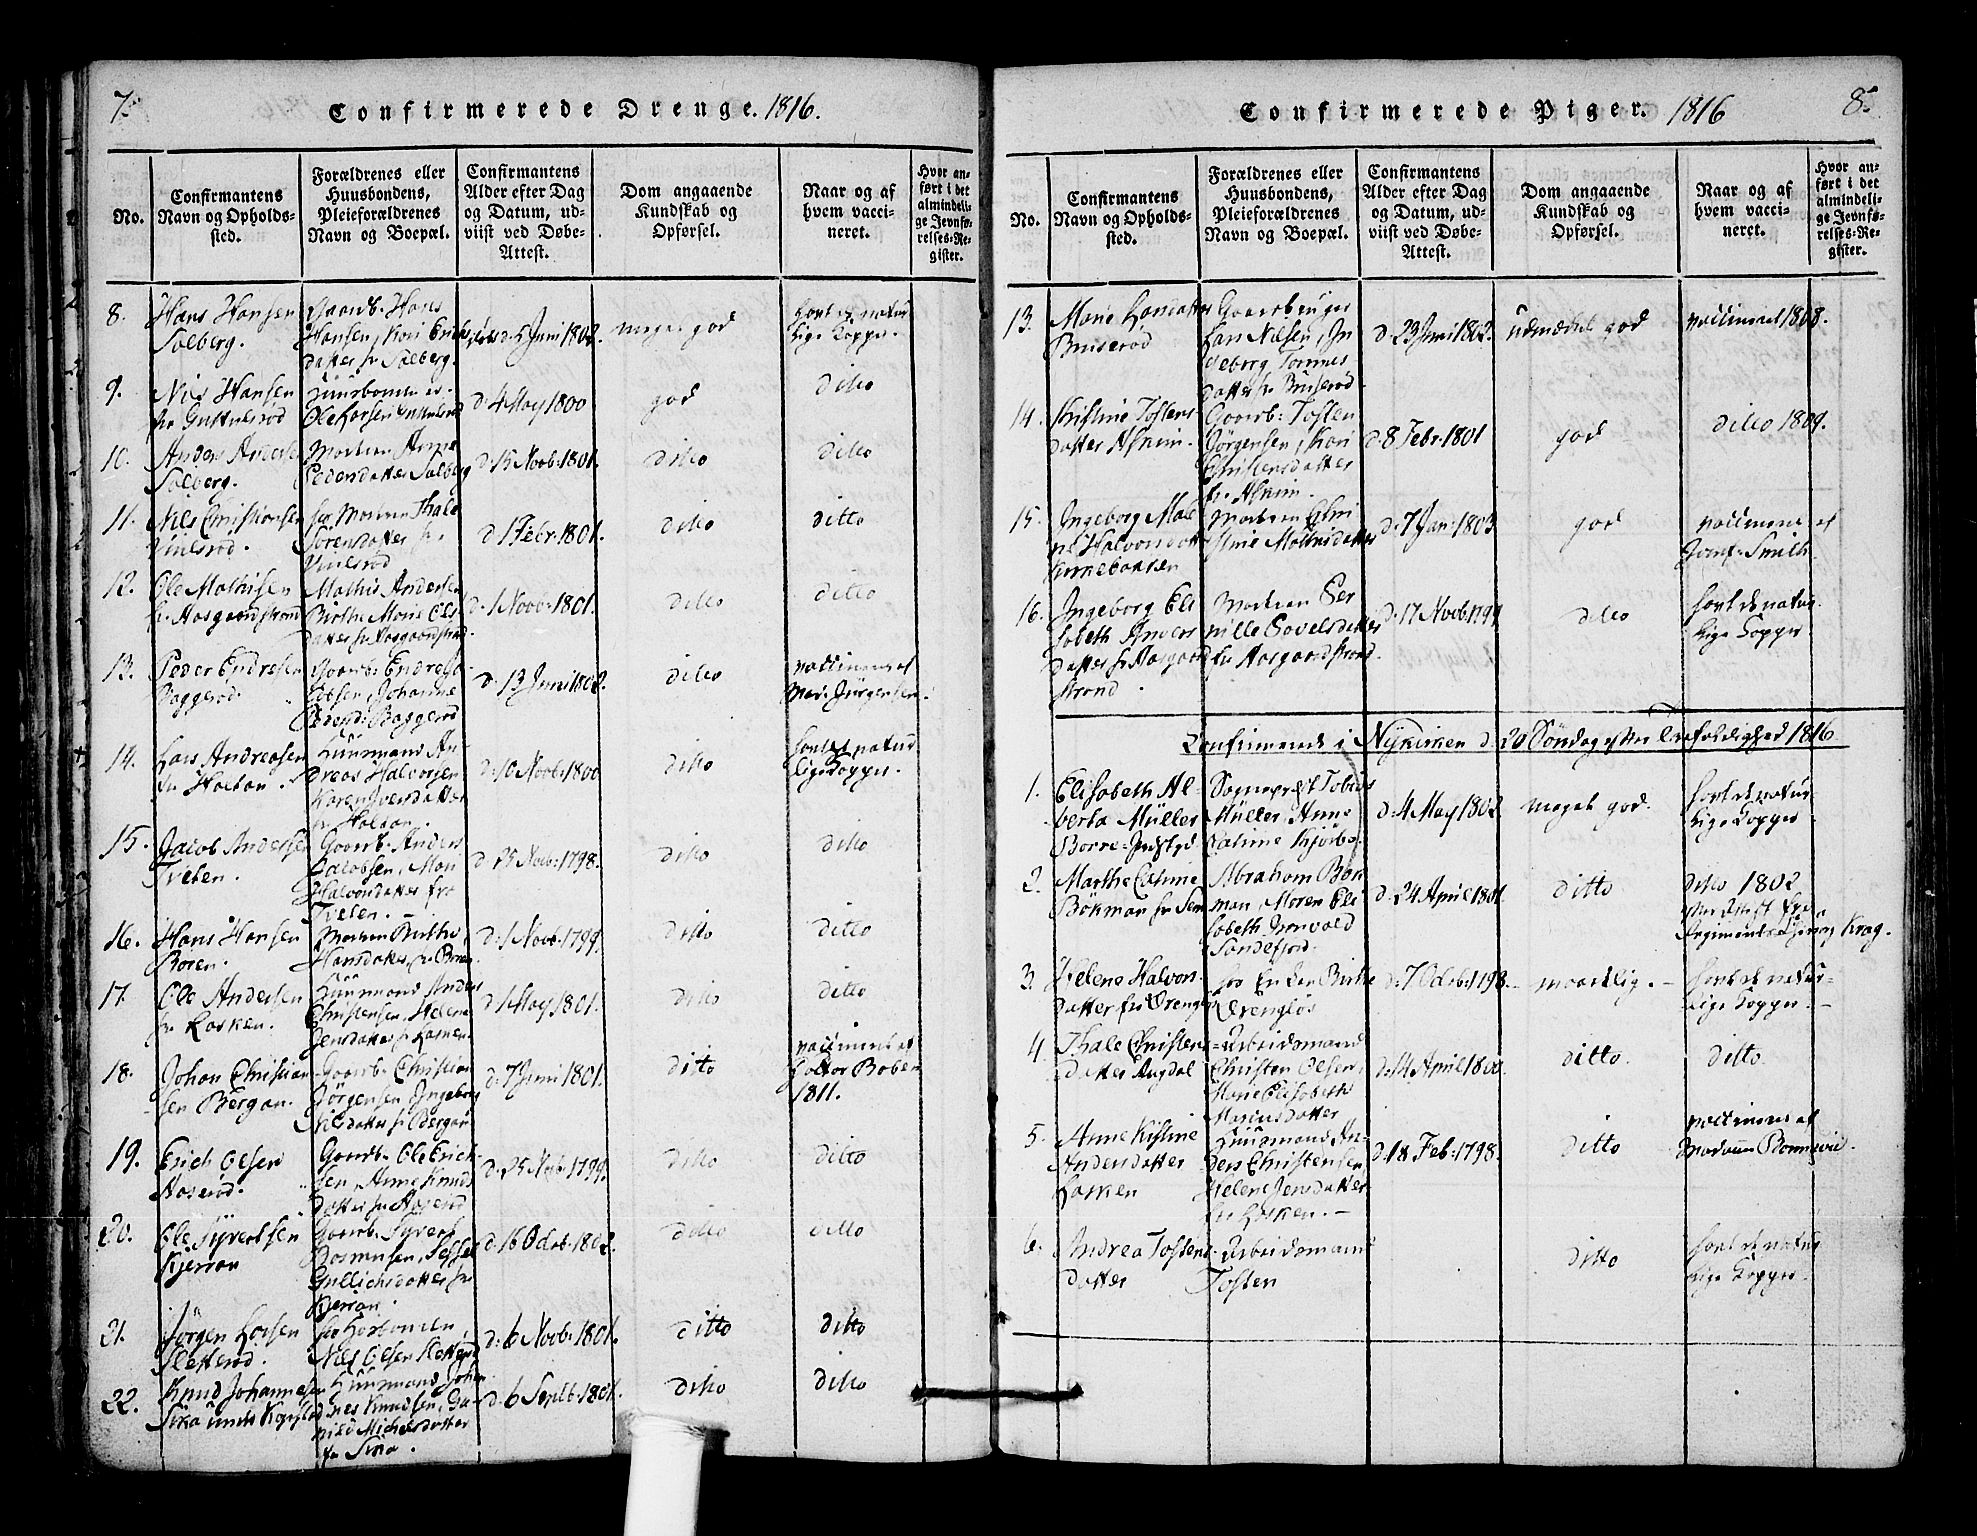 7.
Confirmerede Drenge. 1816.
No.
Confirmantens
Navn og Opholds-
sted.
Forældrenes eller
Huusbondens,
Pleieforældrenes
Navn og Boepæl.
Confirmantens
Alder efter Dag
og Datum, ud-
viist ved Døbe-
Attest.
Dom angaaende
Kundskab og
Opførsel.
Naar og af
hvem vacci-
neret.
Hvor an-
ført i det
almindeli-
ge Jevnfø-
relses-Re-
gister.
8.
Hans Hansen
Solberg.
Gaardb. Hans
Hansen, Kari Erichs
datter fr Solberg.
d. 5 Juni 1802.
meget god
havt de natur
lige Kopper.
9.
Nils Hansen
Huusbonden er
Ole Larsen
d. 4 May 1800
god
ditto
10.
Anders Andersen
Solberg.
Modren Anne
Pedersdatter Solberg
d. 15 Novb. 1801.
ditto
ditto
11.
Nils Christiansen
Vinlsrød.
Modren Thale
Sörensdatter fr
Vinlsrød
d. 1 Febr. 1801.
ditto
ditto
12.
Ole Mathisen
fr Aasgaardstrand
Mathis Andersen
Birthe Marie Ols
datter fr Aasgaardstrand.
d. 1 Novb. 1801.
ditto
ditto
13.
Peder Endresen
Baggerød
Gaardb. Endre
Johanne
Pedersd. Baggerød
d. 13 Juni 1802.
ditto
vaccineret af
Mad. Jürgensen.
14.
Lars Andreasen
fr Holtan.
Huusmand An-
dreas Halvorsen
Karen Iversdatter
fr Holtan.
d. 10 Novb. 1800
ditto
havt de natur
lige Kopper.
15.
Jacob Andersen
Tveten.
Gaardb. Anders
Jacobsen, Mari
Halvorsdatter fra
Tveten.
d. 25 Novb. 1798.
ditto
ditto
16.
Hans Hansen
Boren.
Modren Birthe
Hansdatter fr Boren.
d. 1 Novb. 1799.
ditto
ditto
17.
Ole Andersen
fr Larken.
Huusmand Anders
Christensen, Helene
Jensdatter fr Larken.
d. 1 May 1801.
ditto
ditto
18.
Johan Christian-
sen Bergan.
Gaardb. Christian
Jörgensen Ingeborg
Nilsdatter fr Bergan
d. 7 Juni 1801.
ditto
vaccineret af
1811.
19.
Erich Olsen
Aaserød.
Gaardb. Ole Erich-
sen, Anne Knuds
datter fr Aaserød
d. 25 Novb. 1799.
ditto
ditto
20.
Ole Syvertsen
Kjerran
Gaardb. Syvert
Rasmusen,
Gullichsdatter fr
Kjerran.
d. 16 Octb. 1802.
ditto
ditto
21.
Jörgen Larsen
Sletterød.
Nils Olsen Sletterød
d. 6 Novb. 1801.
ditto
ditto
22.
Knud Johannesen
Huusmand Johan
nes Knudsen, Gu-
nild Michelsdatter
d. 6 Septb. 1801.
ditto
ditto
Confirmerede Piger. 1816
8.
No.
Confirmantens
Navn og Opholds-
sted.
Forældrenes eller
Huusbondens,
Pleieforældrenes
Navn og Boepæl.
Confirmantens
Alder efter Dag
og Datum, ud-
viist ved Døbe-
Attest.
Dom angaaende
Kundskab og
Opførsel.
Naar og af
hvem vacci-
neret.
Hvor an-
ført i det
almindeli-
ge Jevnfø-
relses-Re-
gister.
13.
Marie Larsdatter
Bruserød
Gaardbruger
Lars Nilsen, In
geborg Tonnes
datter fr Bruserød.
d. 23 Juni 1802.
udmærket god
vaccineret 1808.
14.
Kristine Tostens
datter Askim.
Gaardb. Tosten
Jörgensen, Kari
Christensdatter
fr Askim.
d. 8 Febr. 1801
god
ditto 1809.
15.
Ingeborg Male
ne Halvorsdatt
Kirkebakken
Modren Chri
stine Mathisdatter
d. 7 Jan. 1803
god
vaccineret af
Jomf. Smith
16.
Ingeborg Eli
sabeth Anders
datter fr Aasgaard
strand.
Modren Per
nille Povelsdatter
fr Aasgaardstrand.
d. 17 Novb. 1799
ditto
havt de natur
lige Kopper
Confirmerede i Nykirken d. 20 Söndag efter Trefoldighed 1816.
1.
Elisabeth Al-
berta Müller
Borre-Prestgd
Sogneprest Tobias
Müller, Anne
Catrine
d. 4 May 1802
meget god.
havt de natur-
lige Kopper
2.
Marthe Catrine
Bökman fr Sem
Abraham Bök
man, Maren Eli
sabeth Grønvold
Sandefjord.
d. 24 April 1801
ditto
ditto 1802
efter Attest fra
Regiments Chirurg Krag.
3.
Helene Halvors-
datter fr
d. 7 Octb. 1798.
maadelig.
havt de natur-
lige Kopper.
4.
Thale Christens
datter Augdal
Arbeidsmand
Christen Olsen,
Marie Elisabeth
Mariusdatter
d. 14 April 1800
ditto.
ditto.
5.
Anne Kistine
Andersdatter
Larken
Huusmand An-
ders Christensen
Helene Jensdatter
fr Larken.
d. 18 Feb. 1798.
ditto
vaccineret af
Madame Bonnevie.
6.
Andrea Tostens-
datter
Arbeidsmand
Tosten
ditto
havt de natur
lige Kopper.